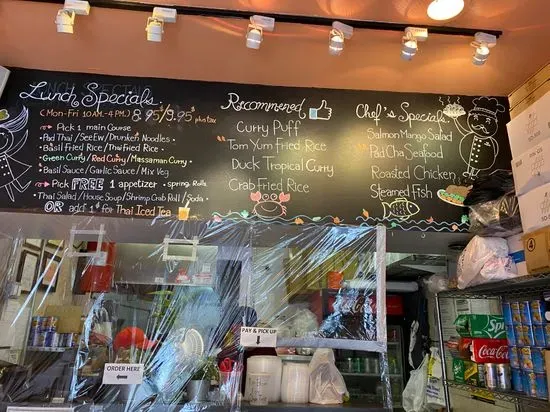 Lunch Specials
(Mon-Fri 10AM-4PM) 8.95$/9.95$ plus tax
Pick 1 main Course
Pad Thai/SeeEw/Drunken Noodles
Basil Fried Rice/Thai Fried Rice
Green Curry/Red Curry/Massaman Curry
Basil Sauce/Garlic Sauce/Mix Veg
Pick FREE 1 appetizer spring Rolls
Thai Salad/House Soup/Shrimp Crab Roll/Soda
OR add 1$ for Thai Iced Tea
Recommened
Curry Puff
Tom Yum Fried Rice
Duck Tropical Curry
Crab Fried Rice
Chef's Specials
Salmon Mango Salad
Pad Cha Seafood
Roasted Chicken
Steamed Fish
ORDER HERE
PAY & PICK UP
Coca-Cola
Coca-Cola